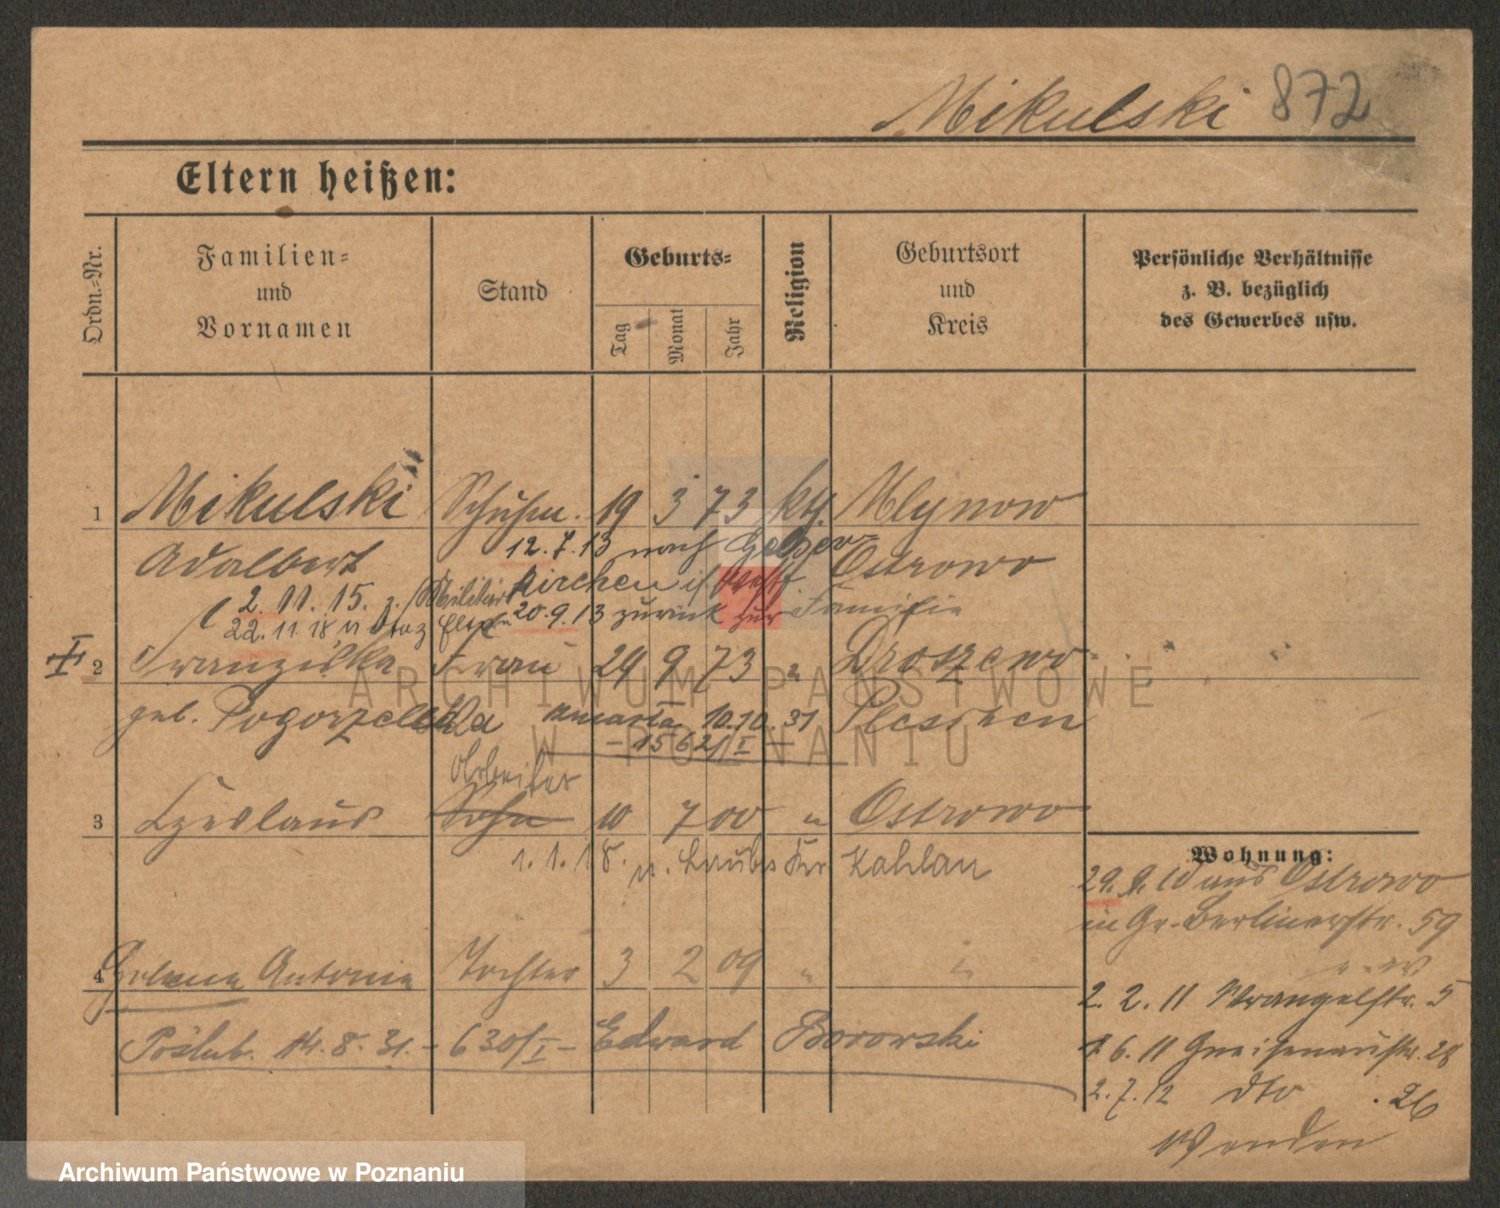 Mikulski 872
Eltern heißen:
Ordn.-Nr.
Familien-
und
Vornamen
Stand
Geburts-
Tag
Monat
Jahr
Religion
Geburtsort
und
Kreis
Persönliche Verhältnisse
z. B. bezüglich
des Gewerbes usw.
1 Mikulski Schuhm. 19 3 73 kth. Mlynow
Adalbert 12.7.13 nach Gelsen- Ostrowo
kirchen i/Westf.
2.11.15. z. Militär 20.9.13 zurück zur Familie
22.11.18
2 Franziska Frau 29 9 73 " Droszewo
geb. Pogorzelska umarła 10.10.31 Pleschen
-1562/I-
Arbeiter
3 Czeslaus Sohn 10 7 00 " Ostrowo
1.1.18. n. Kr. Kahlau
4 Helena Antonie Tochter 3 2 09 " "
Poślub. 14.8.31. - 630/I - Edward Borowski
Wohnung:
29.9.10 aus Ostrowo
in Gr. Berlinerstr. 59
2.2.11 Wrangelstr. 5
1.6.11 Gneisenaustr. 28
2.7.12 dto . 26
Wenden
ARCHIWUM PAŃSTWOWE
W POZNANIU
Archiwum Państwowe w Poznaniu